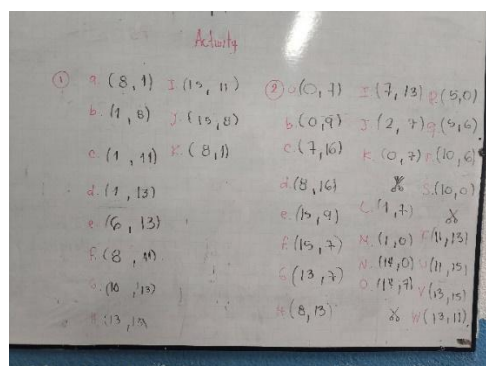 Activity
① a. (8, 1)
b. (1, 8)
c. (1, 11)
d. (1, 13)
e. (6, 13)
f. (8, 11)
(10, 13)
(13, 13)
I. (15, 11)
J. (15, 8)
K. (8, 1)
② a (0, 7)
b. (0, 9)
c. (7, 16)
d. (8, 16)
e. (15, 9)
f. (15, 7)
G (13, 7)
H. (8, 13)
I. (7, 13)
J. (2, 7)
K (0, 7)
L. (1, 7)
M. (1, 0)
N. (14, 0)
O (14, 7)
P. (5, 0)
q. (5, 6)
r. (10, 6)
S. (10, 0)
(11, 13)
U (11, 15)
V (13, 15)
W (13, 11)